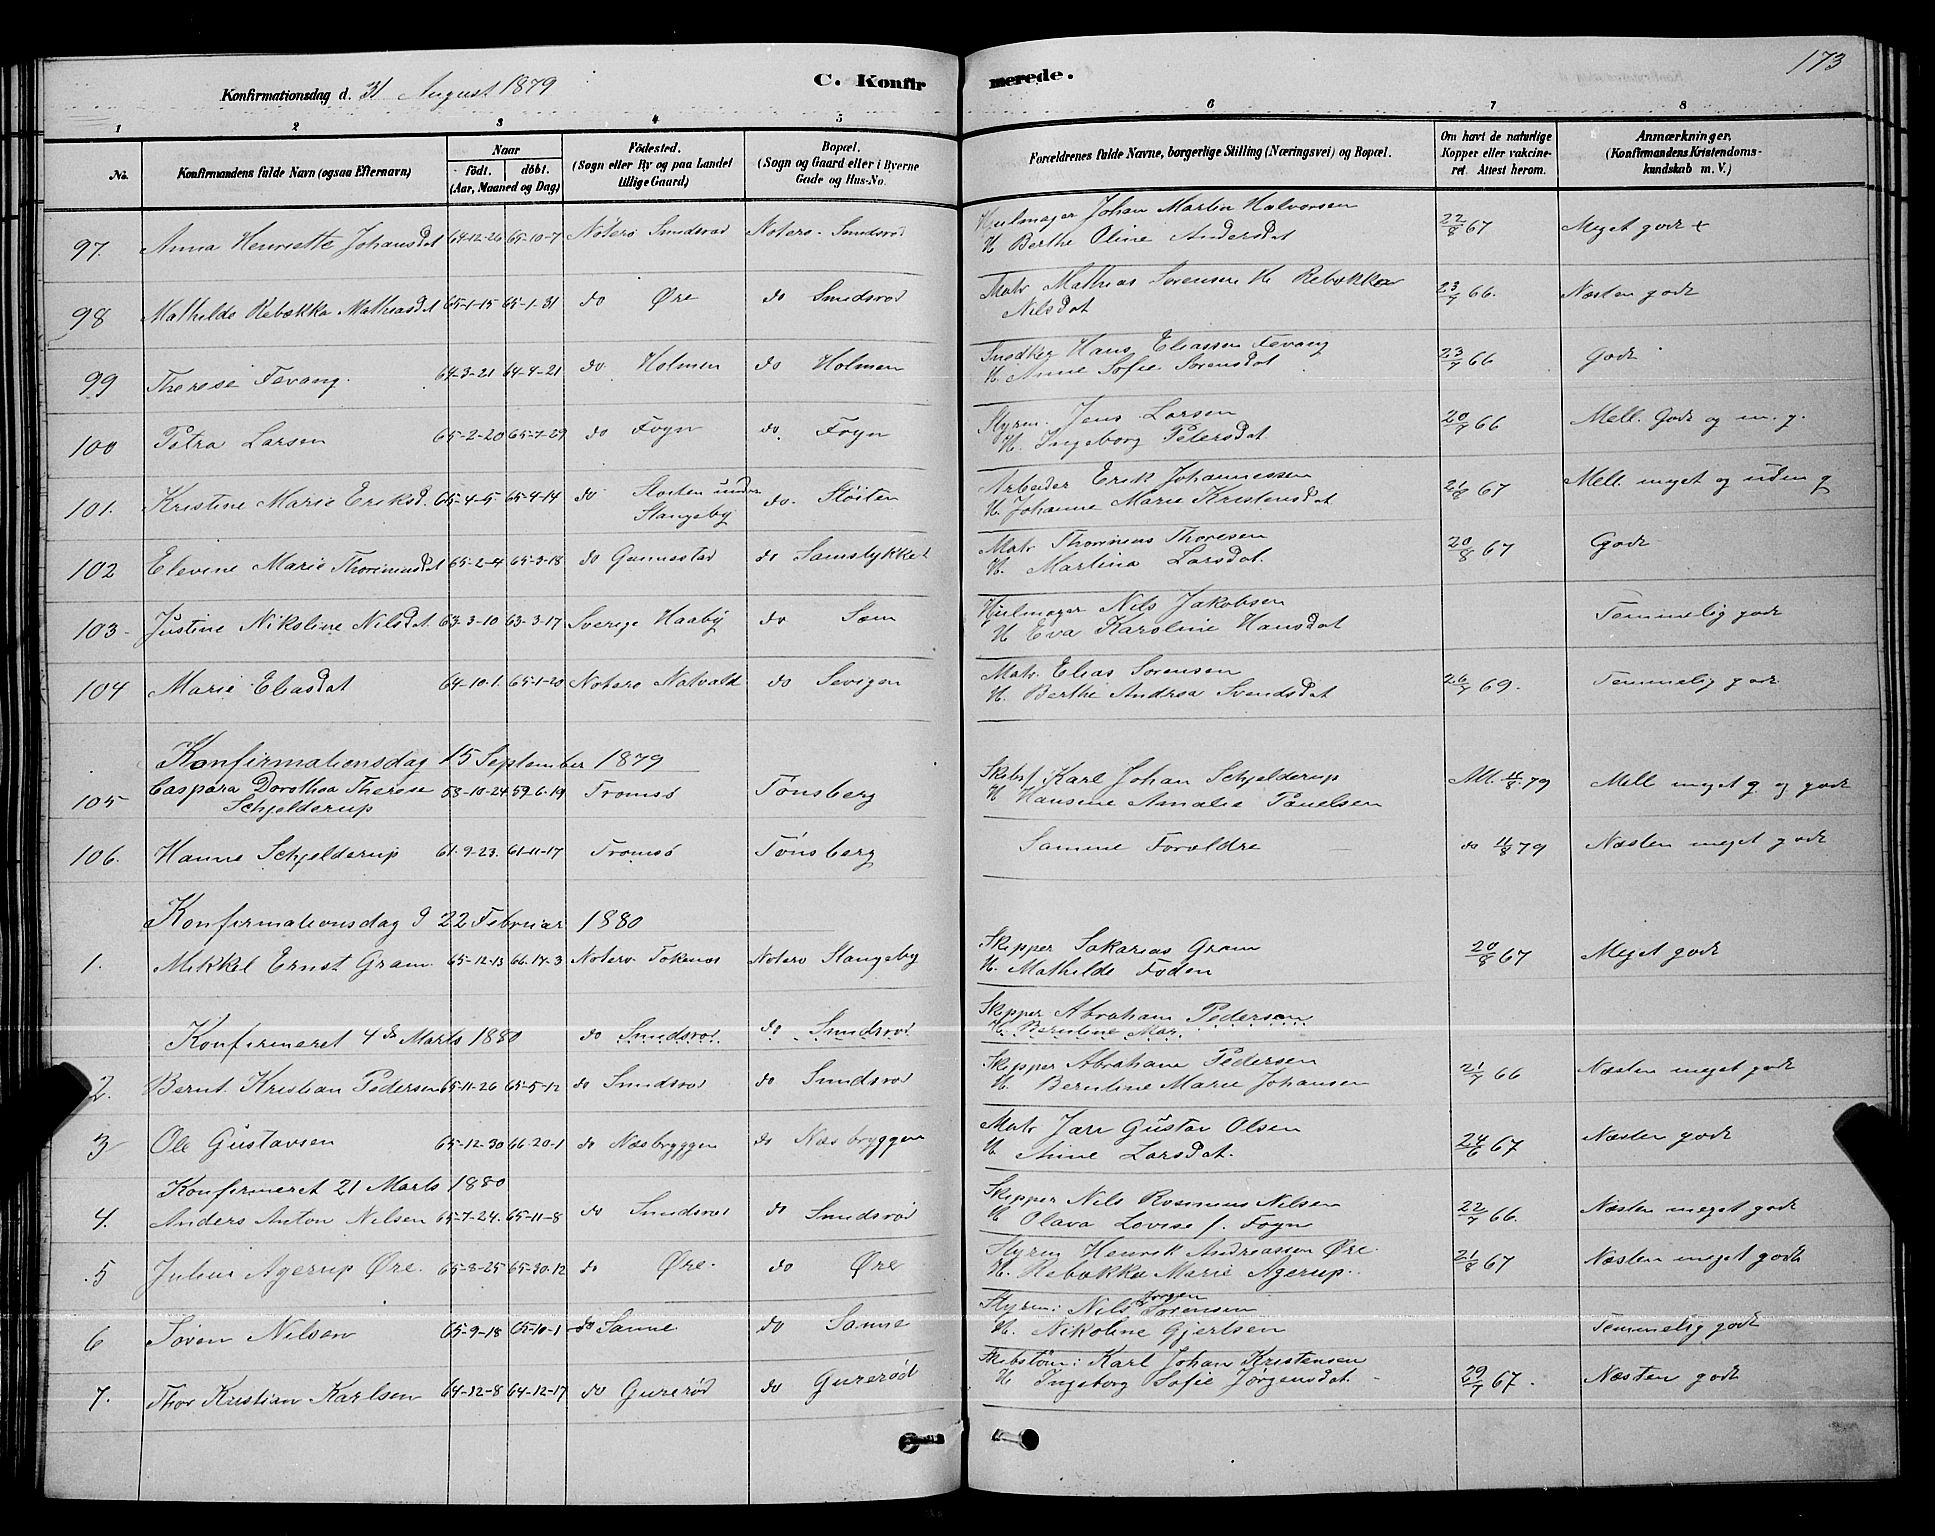 173
Konfirmationsdag d. 31 August 1879
C. Konfirmerede.
1 2 3 4 5 6 7 8
No.
Konfirmandens fulde Navn (ogsaa Efternavn)
Naar
födt. döbt.
(Aar, Maaned og Dag)
Födested.
(Sogn eller By og paa Landet
tillige Gaard)
Bopæl.
(Sogn og Gaard eller i Byerne
Gade og Hus-No.
Forældrenes fulde Navne, borgerlige Stilling (Næringsvei) og Bopæl.
Om havt de naturlige
Kopper eller vakcine-
ret. Attest herom.
Anmærkninger.
(Konfirmandens Kristendoms-
kundskab m. V.)
97. Anna Henriette Johansdat 64-12-26 65-10-7 Nöterö Smidsrod Notero- Smidsrod Hjulmager Johan Martin Halvorsen 22/8 67 Meget godt +
H. Berthe Oline Andersdat
98 Mathilde Rebekka Mathiasdat 65-1-15 65-1-31 do Øre do Smidsrod Matr Mathias Sorensen H. Rebekka 23/7 66. Næsten godt
Nilsdat
99 Therese Fevang. 64-3-21 64-4-21 do Holmen do Holmen Snedker Hans Eliassen Fevang 23/7 66 Godt
H. Anne Sofie Sorensdat
100 Petra Larsen 65-2-20 65-7-29 do Foyn do. Foyn Styrm. Jens Larsen 20/7 66 Mell. Godt og m. g.
H. Ingeborg Petersdat
101. Kristine Marie Eriksd. 65-4-5 65-4-14 do Stoiten under do. Stöiten Arbeider Erik Johannessen 21/8 67 Mell. meget og uden g
Slangsby H. Johanne Marie Kristensdat
102 Elevine Marie Thorinusdat 65-2-4 65-3-18 do Gunnestad do Samstykket Matr Thorinus Thoresen 20/8 67 Godt
H. Martina Larsdat.
103- Justine Nikoline Nilsdat 63-3-10 63-3-17 Sverige Haaby do Sem Hjulmager Nils Jakobsen Temmelig godt
H. Eva Karoline Hansdat
104 Marie Eliasdat 64-10-1. 65-1-20 Notero Natvald do Sevigen Matr. Elias Sorensen 26/7 69. Temmelig godt
H. Berthe Andrea Svendsdat
Konfirmationsdag 15 September 1879
105 Caspara Dorothea Therese 58-10-24 59-6-19 Tromsö Tönsberg Skibsf Karl Johan Schjelderup Att. 11/8 79 Mell meget g og godt
Schjelderup H Hansine Amalie Pauelsen
106. Hanne Schjelderup 61-9-23. 61-11-17 Tromsö Tönsberg Samme Foræeldre do 11/8 79 Næsten meget godt
Konfirmationsdag d 22 Februar 1880
1. Mikkel Ernst Gram. 65-12-13 66-14-3 Notero Tokenes Notero Slangsby Skipper Sakarias Gram 20/8 67 Meget godt
H. Mathilde Foden
Konfirmeret 4de Marts 1880 do Smidsrod do Smidsrod Skipper Abraham Pedersen
H. Berntine Mar.
2. Bernt Kristian Pedersen 65-11-26 65-5-12 do Smidsrod do Smidsrod Skipper Abraham Pedersen 21/7 66 Næsten meget godt
H. Berntine Marie Johansen
3 Ole Gustavsen 65-12-30 66-20-1 do Næsbryggen do Næsbryggen Matr Jarr Gustav Olsen 24/6 67 Næsten godt
H. Anne Larsdat.
Konfirmeret 21 Marts 1880
4. Anders Anton Nilsen 65-7-24. 65-11-8 do Smidsrod do Smidsröd Skipper Nils Rasmus Nilsen 22/7 66. Næsten meget godt
H Olava Lovise f. Foyn
5 Julius Agerup Øre. 65-8-25 65-30-12 do Øre. do Øre Styrm Henrik Andreassen Øre. 21/8 67 Næsten meget godt
H. Rebekka Marie Agerup.
6 Sören Nilsen 65-9-18 65-10-1 do Sanne do Sanne Styrm: Nils Jorgen Sorensen Temmelig godt
H. Nikoline Gjertsen
7. Thor Kristian Karlsen 64-12-8 64-12-17 do Gureröd do Gureröd Skibstöm: Karl Johan Kristensen 29/7 67. Næsten godt
H Ingeborg Sofie Jörgensdat.